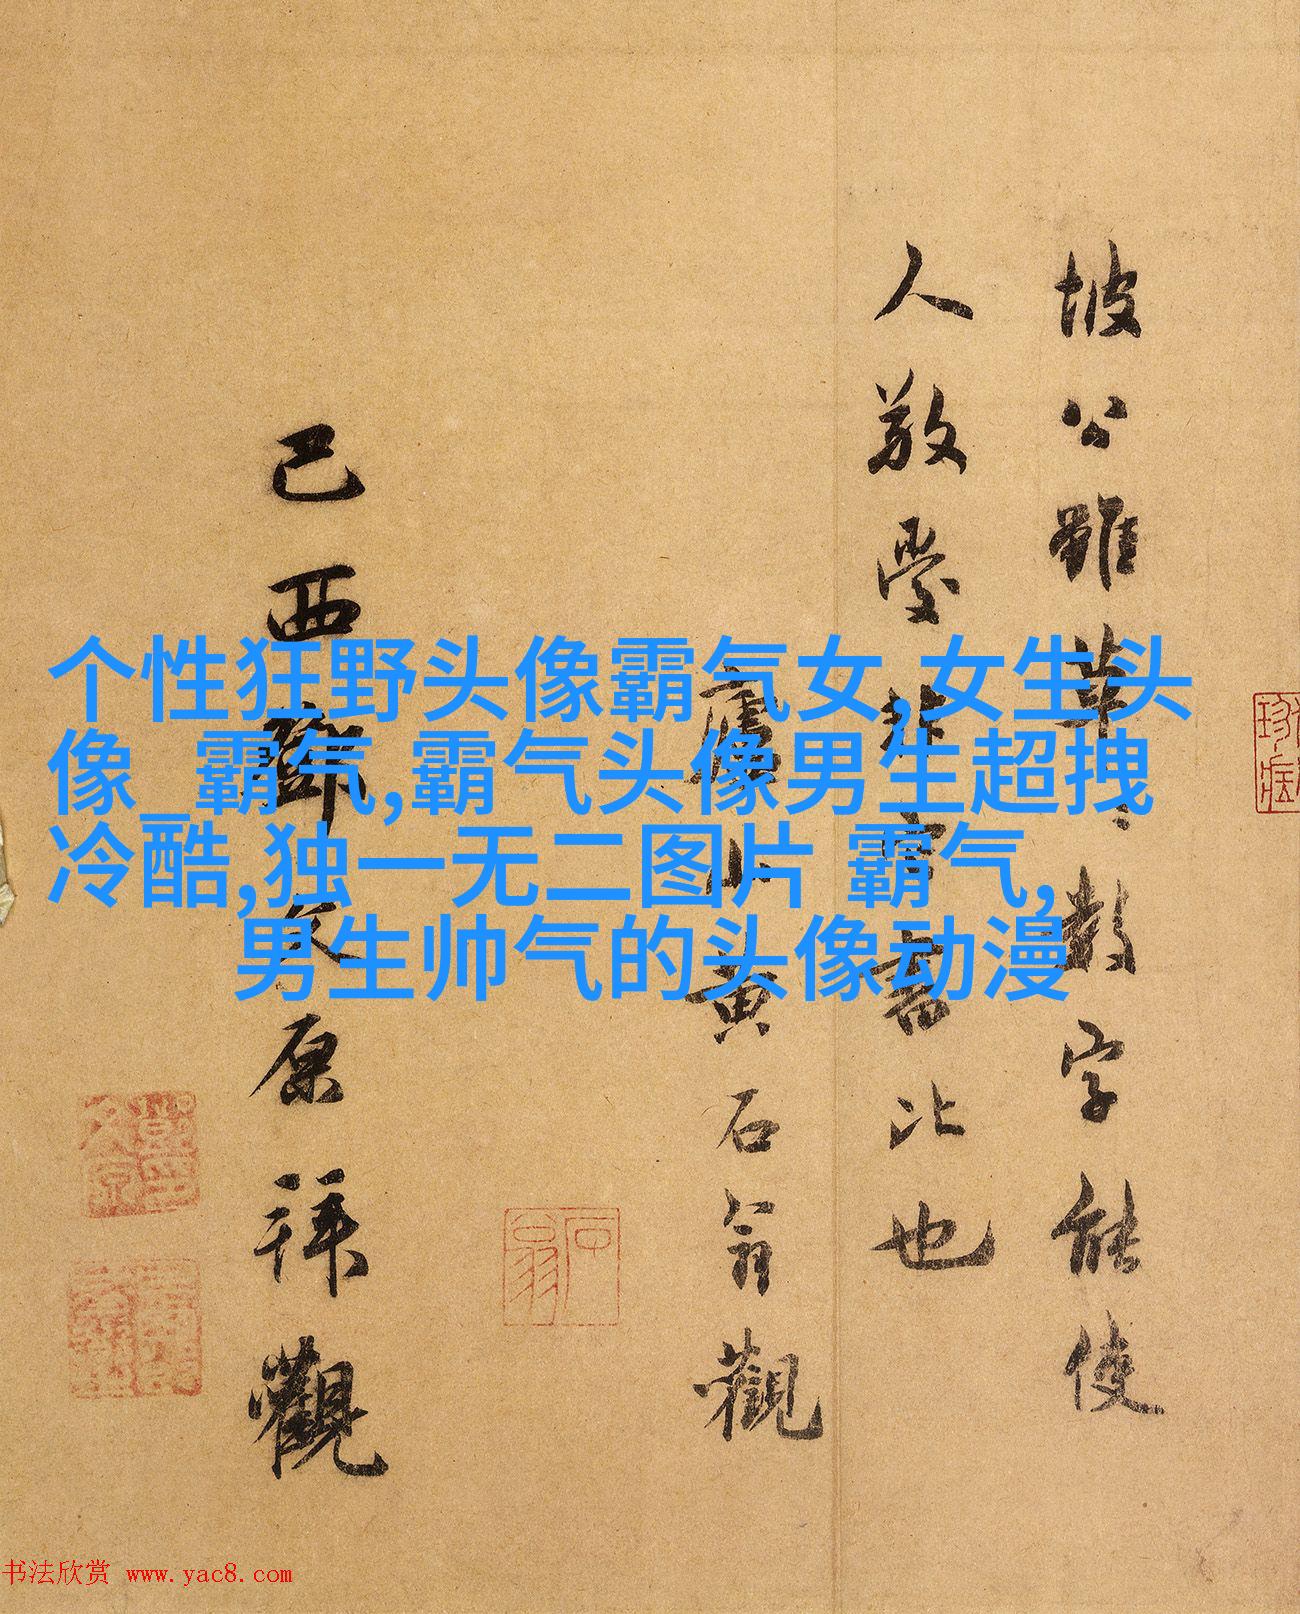 个性狂野头像霸气女,女生头
像_霸气,霸气头像男生超拽
冷酷,独一无二图片 霸气,
男生帅气的头像动漫
坡公雖草〻數字能使
人敬愛非書比也
廬山黄石翁觀
己酉鄧文原拜觀
石翁
书法欣赏 www.yac8.com